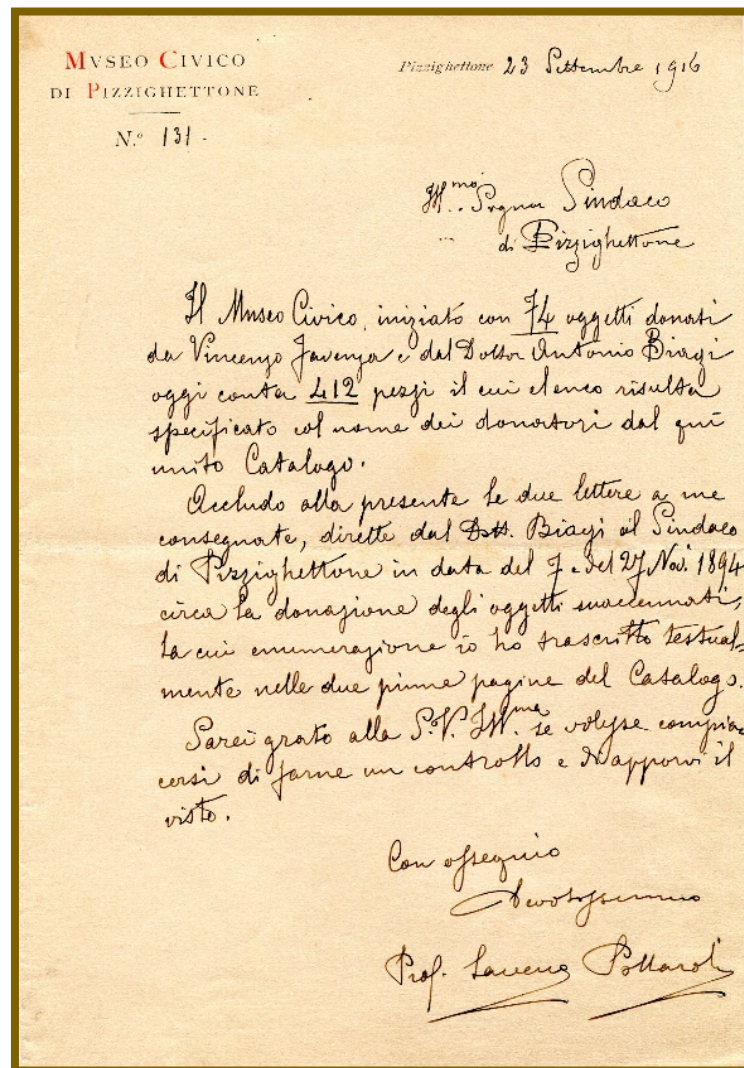 MVSEO CIVICO
DI PIZZIGHETTONE
N.º 131.
Pizzighettone 23 Settembre 1916
Ill.mo Signor Sindaco
di Pizzighettone
Il Museo Civico, iniziato con 74 oggetti donati
da Vincenzo e dal Dottor Antonio Biagi
oggi conta 412 pezzi il cui elenco risulta
specificato col nome dei donatori dal qui
unito Catalogo.
Accludo alla presente le due lettere a me
consegnate, dirette dal Dott. Biagi al Sindaco
di Pizzighettone in data del 7 e del 27 Nov. 1894
circa la donazione degli oggetti suaccennati,
la cui enumerazione io ho trascritto testual=
mente nelle due prime pagine del Catalogo.
Sarei grato alla S.V. Ill.ma se volesse compia=
cersi di farne un controllo e di apporvi il
visto.
Con ossequio
Devotissimo
Prof.